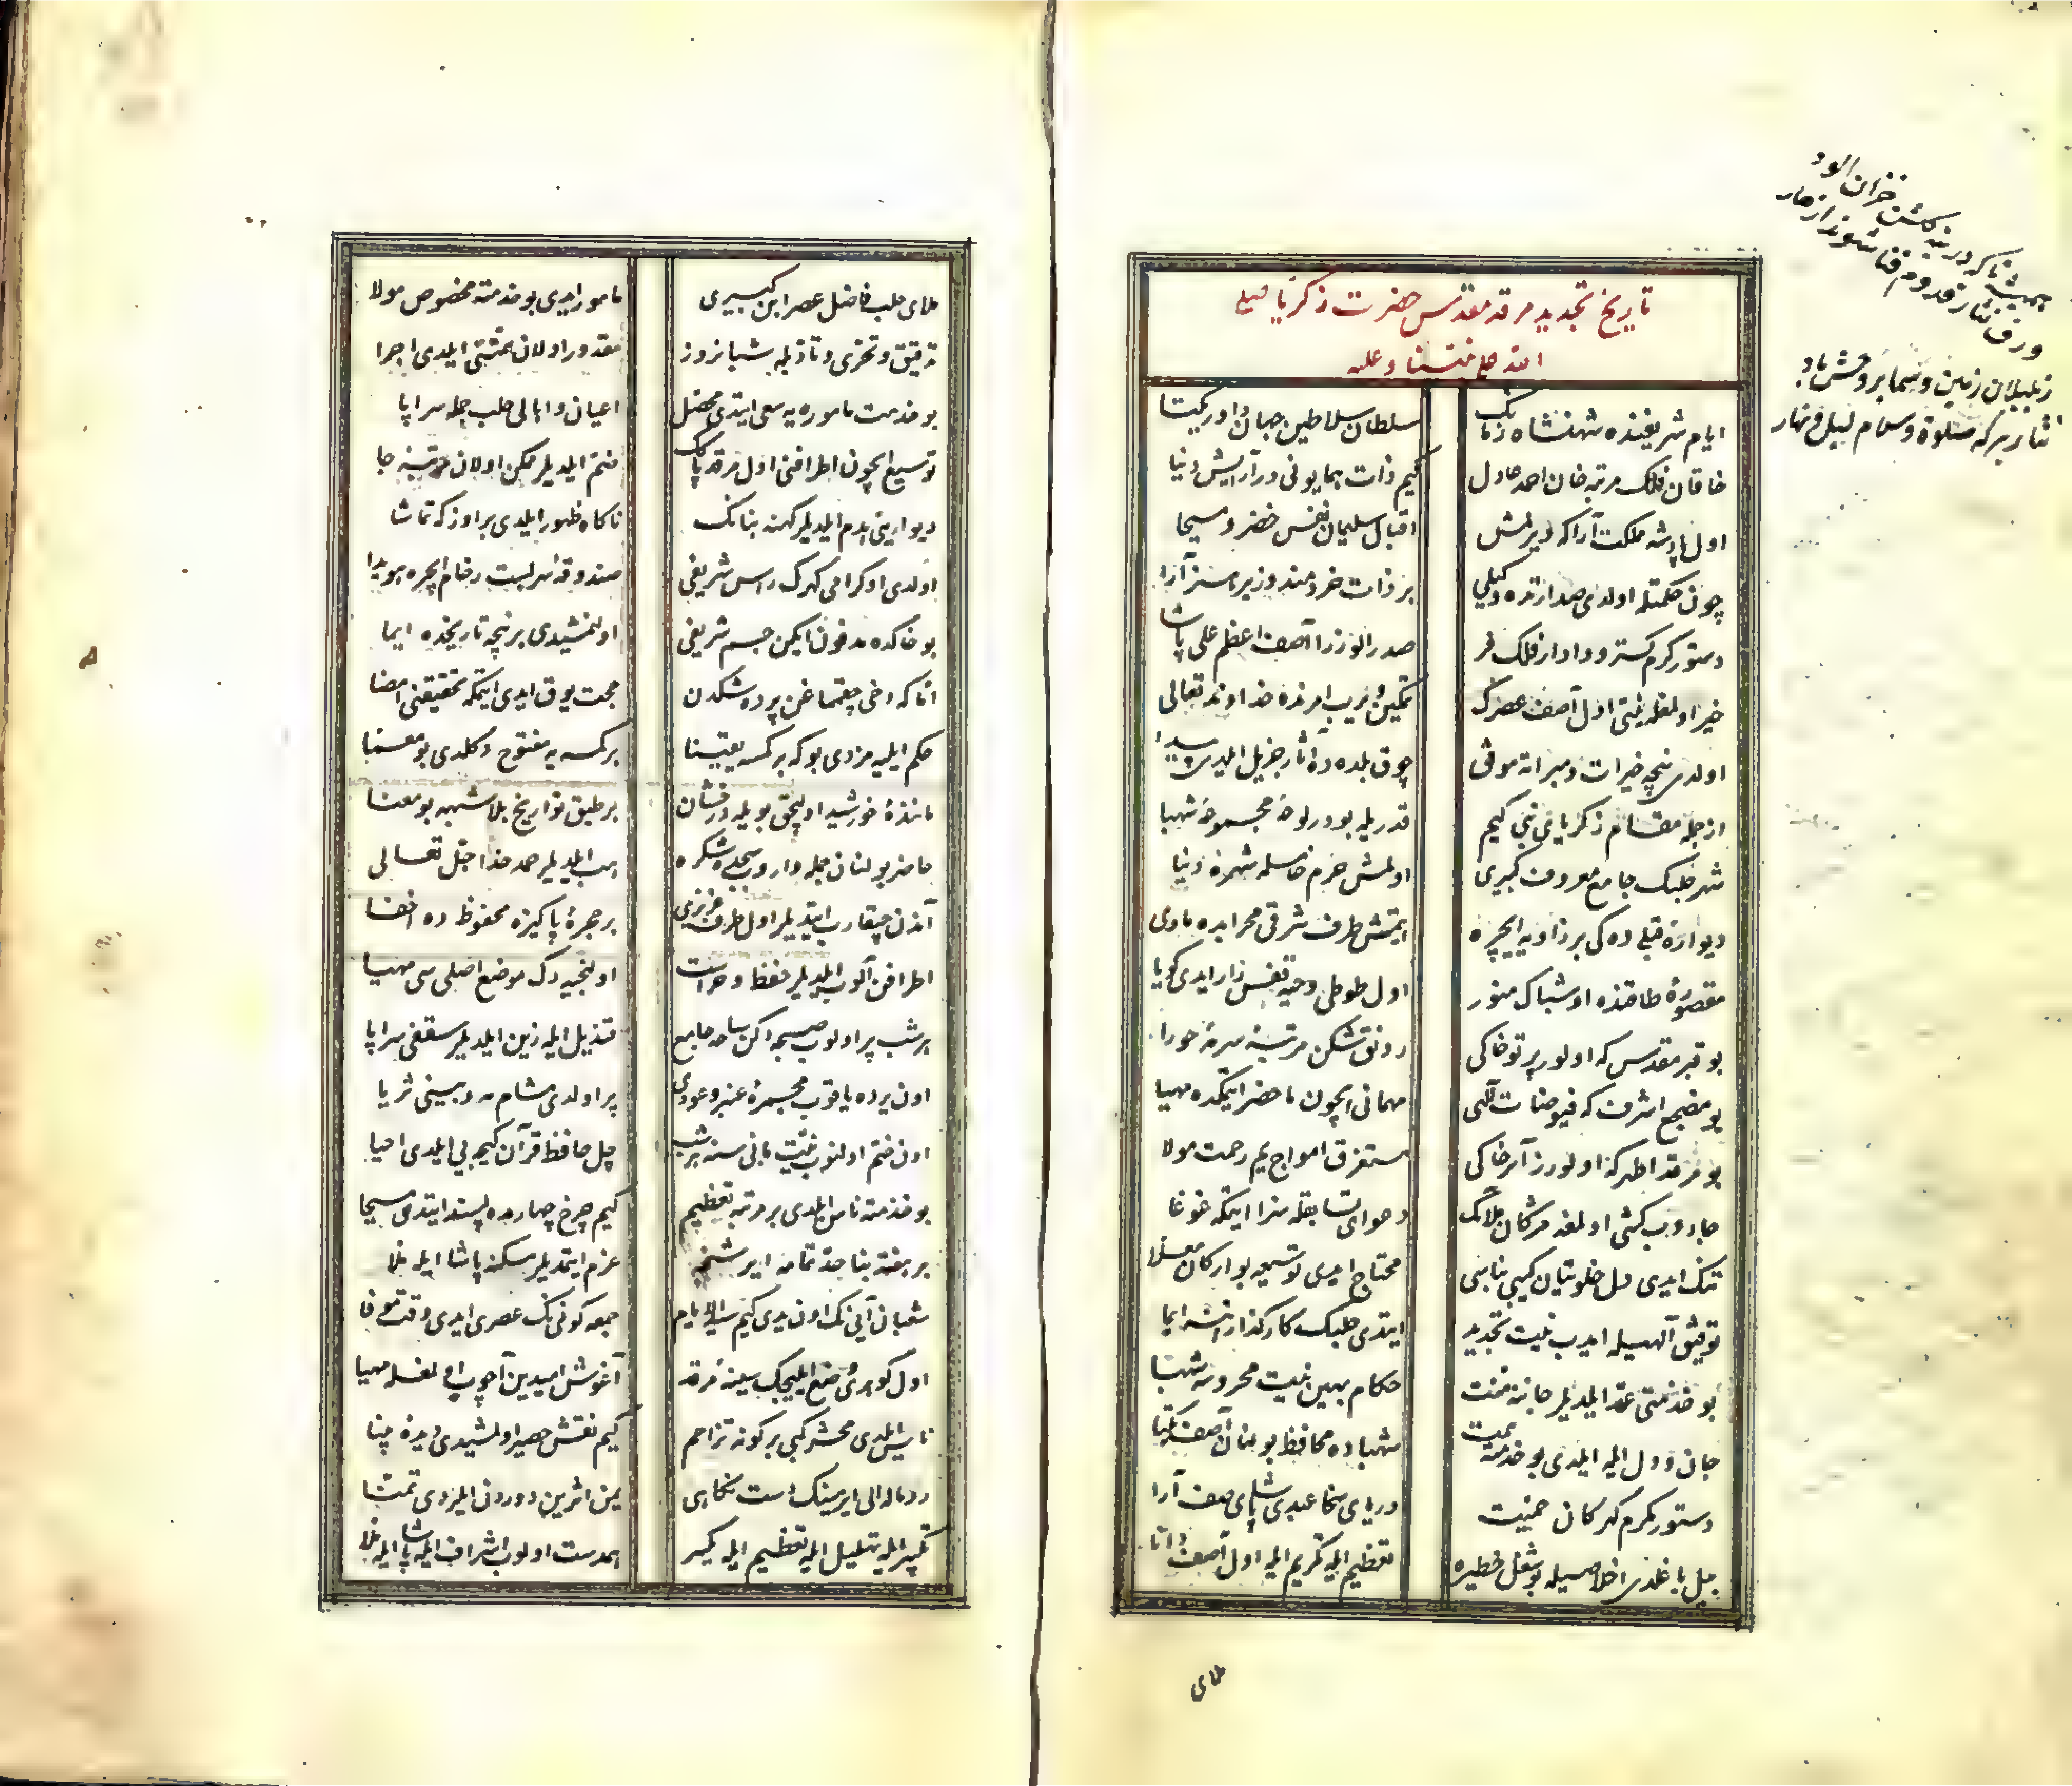 تاریخ تجدید مرقد مقدس حضرت زکریا صلی
الله علی نبینا وعلیه
ایام شریفنده شهنشاه زمانک سلطان سلاطین جهان داور یکتا
خاقان فلک مرتبه خان احمد عادل کیم ذات همایونی در آرایش دنیا
اول پادشه مملکت آرا که دیرلمش اقبال سلیمان نفس خضر و مسیحا
چون حکمتله اولدی صدارتده وکیلی بر ذات خردمند وزیر
دستور کرم کستر و دادار فلک فر صدر الوزرا آصف اعظم علی پاشا
خیر اولمغله نیتی اول آصف عصرک تمکین ویریب امرنده خداوند تعالی
اولدی نیچه خیرات و مبراته موفق چوق بلده ده آثار جزیل ایلدی پیدا
از جمله مقام زکریای نبی کیم قدریله بودر لوحه مجموعه شهبا
شهر حلبک جامع معروف کبیری اولمش حرم خاصله شهره دنیا
دیواره قبلی ده کی بر زاویه ایچره ایتمش طرف شرقی محرابده مأوی
مقصوره طاقنده او شباک منور اول طوطی وحیه قفس زار ایدی کویا
بو قبر مقدس که اولور پرتو خاکی رونق شکن مرتبه سرمه حورا
بو مضجع اشرف که فیوضات الهی مهمانی ایچون ماحضر ایتمکده مهیا
بو مرقد اطهر که اولور زآمر خاکی مستغرق امواج یم رحمت مولا
جاروب کشی اولمغه مژکان ملائک دعوای تسابقله سزا ایتمکه غوغا
تنک ایدی دل خلوتیان کیبی بناسی محتاج ایدی توسیعه بو ارکان معلا
توفیق الهیله ایدیب نیت تجدید ایتدی حلبک کارکذارانه ایما
بو خدمتی عقد ایلدیلر جانه منت حکام بهین نیت محروسه شهبا
جان و دل ایله ایلدی بو خدمته همت شهباده محافظ بولنان آصف یکتا
دستور مکرم کهر کان حمیت دریای سخا عبدی پاشای صف آرا
بیل باغلدی اخلاصیله بو شغل خطیره تعظیم ایله تکریم ایله اول آصف دانا
ملای
همیشه تا که درین کلشن خزان آلود
ورق نثار قدوم فنا شوند ازهار
ز بلبلان زمین و سما بروحش باد
نثار برکه صلوة و سلام لیل و نهار
ملای حلب فاضل عصر ابن کبیری مامور ایدی بو خدمته مخصوص مولا
تدقیق و تحری و تأنیله شبانروز مقدور اولان همتنی ایلدی اجرا
بو خدمت ماموره یه سعی ایتدی محصل اعیان و اهالی حلب جمله سراپا
توسیع ایچون اطرافنی اول مرقد پاک ضم ایلدیلر ممکن اولان مرتبه جا
دیوارینی هدم ایلدیلر کهنه بنانک ناکاه ظهور ایلدی بر اوزکه تماشا
اولدی او کرامی کهرک راس شریفی صندوقه سربست رخام ایچره هویدا
بو خاکده مدفون ایکن جسم شریفی اولنمشیدی بر نیچه تاریخده ایما
اما که دخی چقمامغن پرده شکدن حجت یوق ایدی ایتمکه تحقیقنی امضا
حکم ایلیه مزدی بو که بر کسه یقینا بر کسه یه مفتوح دکلدی بو معما
ماننده خورشید اولیجق بویله درخشان بر طبق تواریخ بلا شبهه بو معنا
حاضر بولنان جمله واروب سجده شکره هب ایلدیلر حمد خدا جل تعالی
آندن چیقارب ایتدیلر اول طرف عزیزی بر حجره پاکیزه محفوظ ده اخفا
اطرافن آلوب ایلدیلر حفظ و حراست اولنجیه دک موضع اصلی سی مهیا
هر شب پر اولوب صبحه دکن ساحه جامع قندیل ایله زین ایلدیلر سقفی سراپا
اون یرده یاقوب مجمره عنبر و عودی پر اولدی مشام مه و بینی ثریا
اون ختم اولنوب نیت بانی سنه هر شب چل حافظ قرآن کیجه یی ایلدی احیا
بو خدمته ناس ایلدی بر مرتبه تعظیم کیم چرخ چهارمده پسند ایتدی مسیحا
بر هفته بنا حد تمامه ایرشنجه عزم ایتدیلر مسکنه پاشا ایله ملا
شعبان آیینک اون یدی کیم جمعه کونینک عصری ایدی وقت موفا
اول کوهری وضع ایلیجک سینه مرقد آغوش امیدین آچوب اولمغله مهیا
ناس ایلدی محشر کبی بر کونه تزاحم کیم نقش حصیر اولمشیدی دیده بینا
رومال الی ایرمینک دست نکاهی یمن اثرین دوردن ایلردی تمنا
تکبیر ایله تهلیل ایله تعظیم ایله یکسر همدست اولوب اشراف ایله پاشا ایله ملا